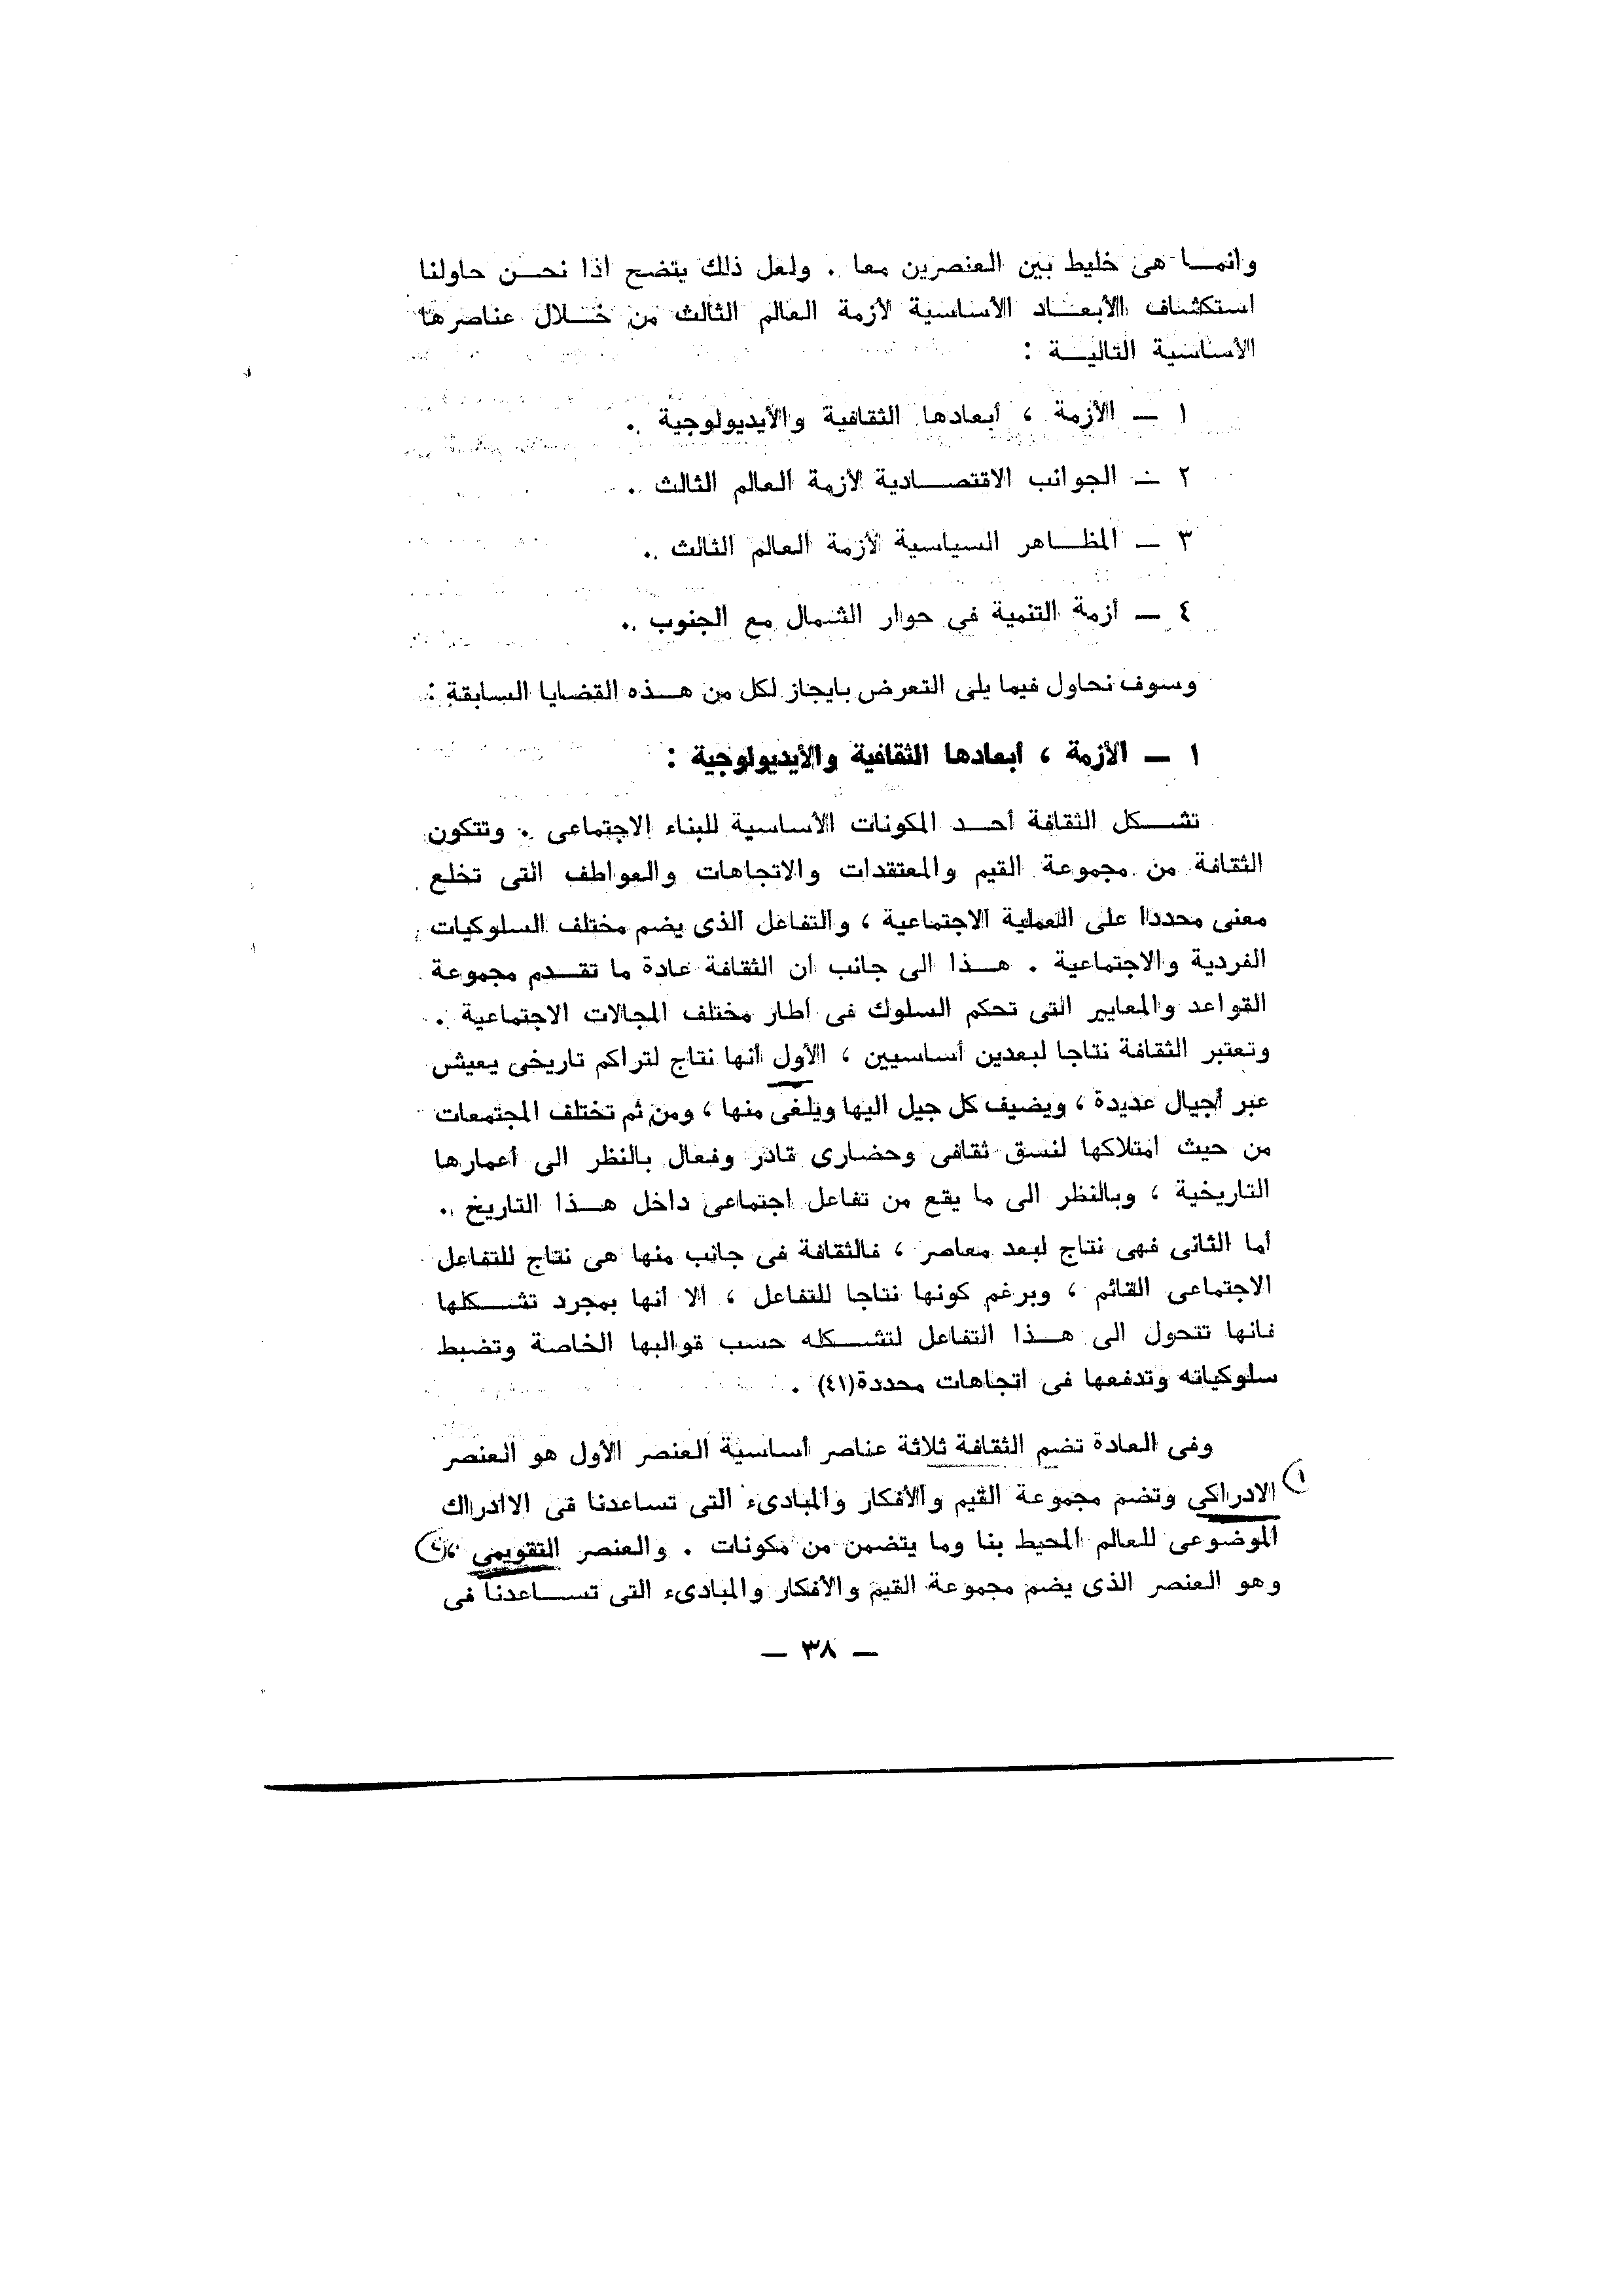 وانمـــا هى خليط بين العنصرين معا . ولعل ذلك يتضح اذا نحـــن حاولنا
استكشاف الأبعـــاد الأساسية لأزمة العالم الثالث من خـــلال عناصرها
الأساسية التاليـــة :
١ — الأزمة ، أبعادها الثقافية والأيديولوجية .
٢ — الجوانب الاقتصـــادية لأزمة العالم الثالث .
٣ — المظـــاهر السياسية لأزمة العالم الثالث .
٤ — أزمة التنمية فى حوار الشمال مع الجنوب .
وسوف نحاول فيما يلى التعرض بايجاز لكل من هـــذه القضايا السابقة :
١ — الأزمة ، أبعادها الثقافية والأيديولوجية :
تشـــكل الثقافة أحـــد المكونات الأساسية للبناء الاجتماعى . وتتكون
الثقافة من مجموعة القيم والمعتقدات والاتجاهات والعواطف التى تخلع
معنى محددا على العملية الاجتماعية ، والتفاعل الذى يضم مختلف السلوكيات
الفردية والاجتماعية . هـــذا الى جانب ان الثقافة عادة ما تقـــدم مجموعة
القواعد والمعايير التى تحكم السلوك فى اطار مختلف المجالات الاجتماعية .
وتعتبر الثقافة نتاجا لبعدين أساسيين ، الأول أنها نتاج لتراكم تاريخى يعيش
عبر أجيال عديدة ، ويضيف كل جيل اليها ويلغى منها ، ومن ثم تختلف المجتمعات
من حيث امتلاكها لنسق ثقافى وحضارى قادر وفعال بالنظر الى أعمارها
التاريخية ، وبالنظر الى ما يقع من تفاعل اجتماعى داخل هـــذا التاريخ .
أما الثانى فهى نتاج لبعد معاصر ، فالثقافة فى جانب منها هى نتاج للتفاعل
الاجتماعى القائم ، وبرغم كونها نتاجا للتفاعل ، الا أنها بمجرد تشـــكلها
فانها تتحول الى هـــذا التفاعل لتشـــكله حسب قوالبها الخاصة وتضبط
سلوكياته وتدفعها فى اتجاهات محددة(٤١) .
وفى العادة تضم الثقافة ثلاثة عناصر أساسية العنصر الأول هو العنصر
الادراكى وتضم مجموعة القيم والأفكار والمبادىء التى تساعدنا فى الاادراك ١
الموضوعى للعالم المحيط بنا وما يتضمن من مكونات . والعنصر التقويمى ، ٢
وهو العنصر الذى يضم مجموعة القيم والأفكار والمبادىء التى تســـاعدنا فى
— ٣٨ —